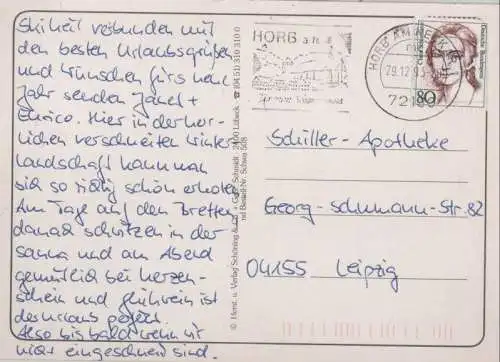 Ski heil verbunden mit
den besten Urlaubsgrüßen
und Wünschen fürs neue
Jahr senden Janet +
Enrico. Hier in der herr-
lichen verschneiten Winter
landschaft kann man
sich so richtig schön erholen
Am Tage auf den Brettern
danach schwitzen in der
Sauna und am Abend
gemütlich bei Kerzen-
schein und Glühwein ist
der Urlaub perfekt.
Also bis bald wenn wir
nicht eingeschneit sind.
© Herst. u. Verlag Schöning & Co. + Gebr. Schmidt · 2400 Lübeck · ☎ (04 51) 310 310 0
Bestell-Nr. Schwa 508
HORB a. N.
HORB AM NECKAR
29.12.93
721
80
Deutsche Bundespost
Schiller-Apotheke
Georg-Schumann-Str. 82
04155 Leipzig